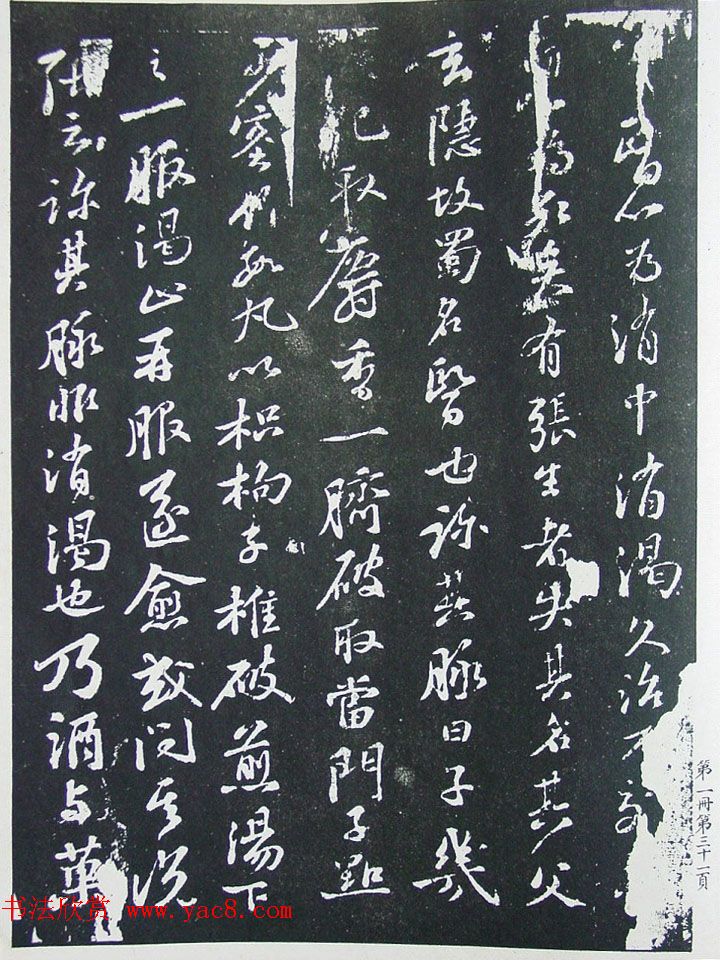 醫以為消中消渴久治不
有張生者失其名其父
玄隱故蜀名醫也診其脉曰子幾
取麝香一臍破取當門子點
蜜作數丸以枳枸子椎破煎湯下
之一服渴止再服遂愈或問其說
張云診其脉非消渴也乃酒與
第一冊第三十一頁
书法欣赏 www.yac8.com